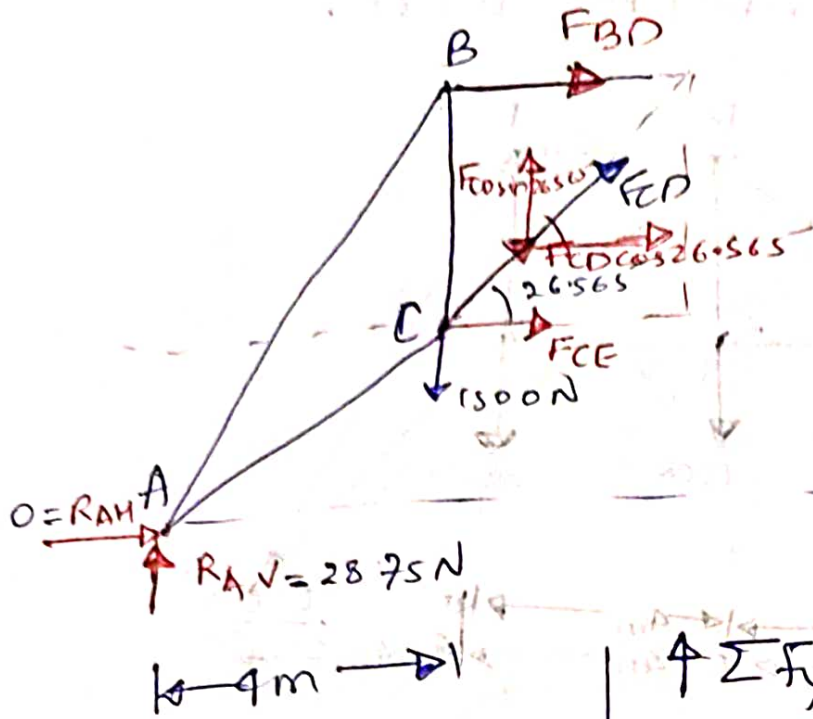 B
FBD
FCD
FCD cos 26.565
26.565
C
FCE
1500N
A
0 = RAH
RAV = 2875N
4m
↑ Σ Fy